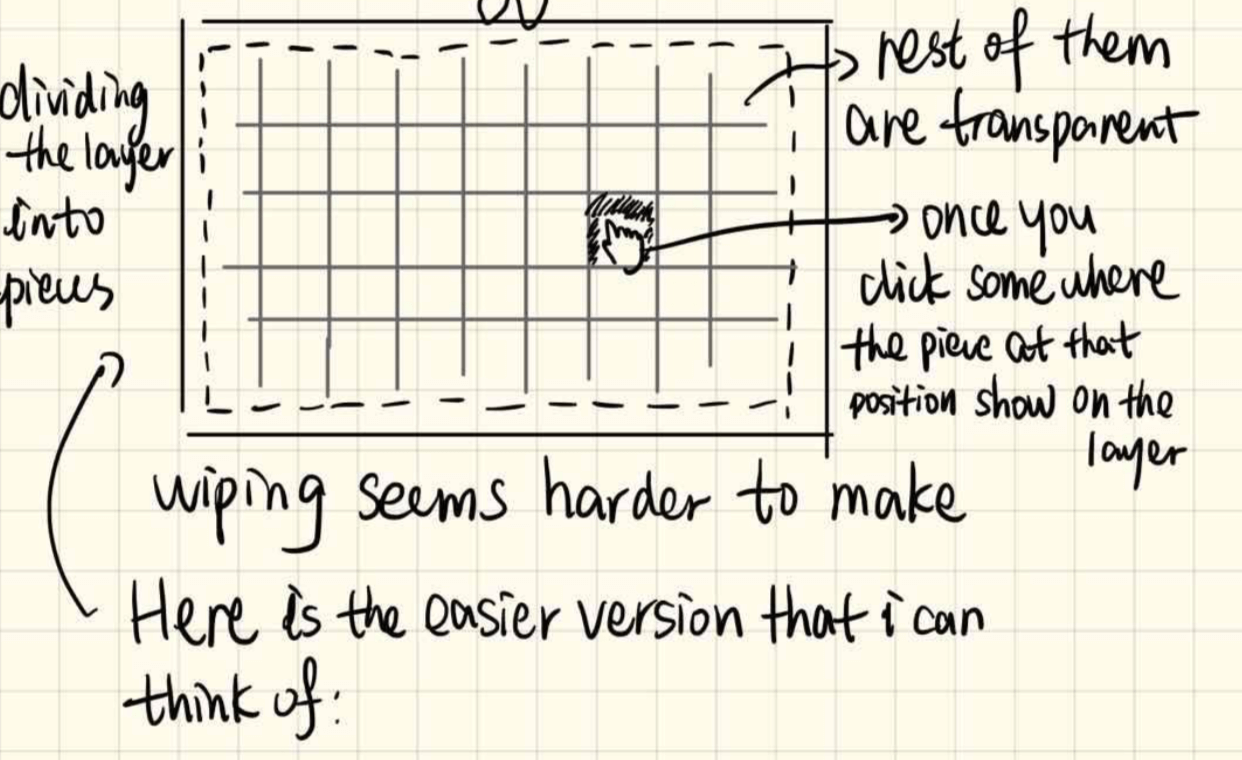 dividing
the layer
into
pieces
rest of them
are transparent
once you
click somewhere
the piece at that
position show on the
layer
wiping seems harder to make
Here is the easier version that i can
think of: